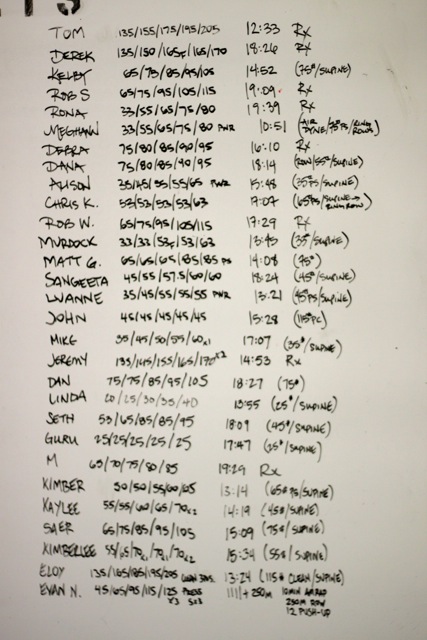 TOM 135/155/175/195/205 12:33 Rx
DEREK 135/150/165F/165/170 18:26 Rx
KELBY 65/75/85/95/105 14:52 (75#/SUPINE)
ROB S 65/75/95/105/115 19:09 Rx
RONA 33/55/65/75/80 19:39 Rx
MEGHANN 33/55/65/75/80 PWR 10:51 (AIR DYNE/75#PS/RING ROWS)
DEBRA 75/80/85/90/95 16:10 Rx
DANA 75/80/85/90/95 18:14 (ROW/55#/SUPINE)
ALISON 35/45/55/55/65 PWR 15:48 (35#PS/SUPINE)
CHRIS K. 53/53/53/53/63 17:07 (65#PS/SUPINE→RING ROW)
ROB W. 65/75/95/105/115 17:29 Rx
MURDOCK 33/33/53F/53/63 13:45 (35#/SUPINE)
MATT G. 65/65/65/85/85 PS 14:08 (75#)
SANGEETA 45/55/57.5/60/60 18:24 (45#/SUPINE)
LUANNE 35/45/55/55/55 PWR 13:21 (45#PS/SUPINE)
JOHN 45/45/45/45/45 15:28 (115#PC)
MIKE 35/45/50/55/60x1 17:07 (35#/SUPINE)
JEREMY 135/145/155/165/170x2 14:53 Rx
DAN 75/75/85/95/105 18:27 (75#)
LINDA 20/25/30/35/40 13:55 (25#/SUPINE)
SETH 53/65/85/85/95 18:09 (45#/SUPINE)
GURU 25/25/25/25/25 17:47 (25#/SUPINE)
M 65/70/75/80/85 19:29 Rx
KIMBER 50/50/55/60/65 13:14 (65#PS/SUPINE)
KAYLEE 55/55/60/65/70x2 14:19 (45#/SUPINE)
SAER 65/75/85/95/105 15:09 (75#/SUPINE)
KIMBERLEE 55/65/70x1/70x1/70x2 15:34 (55#/SUPINE)
ELOY 135/165/185/195/205 13:24 (115# CLEAN/SUPINE)
EVAN N. 45/65/95/115/125 PRESS 111/+250M 10MIN AMRAP
x3 5x3 250M ROW
12 PUSH-UP